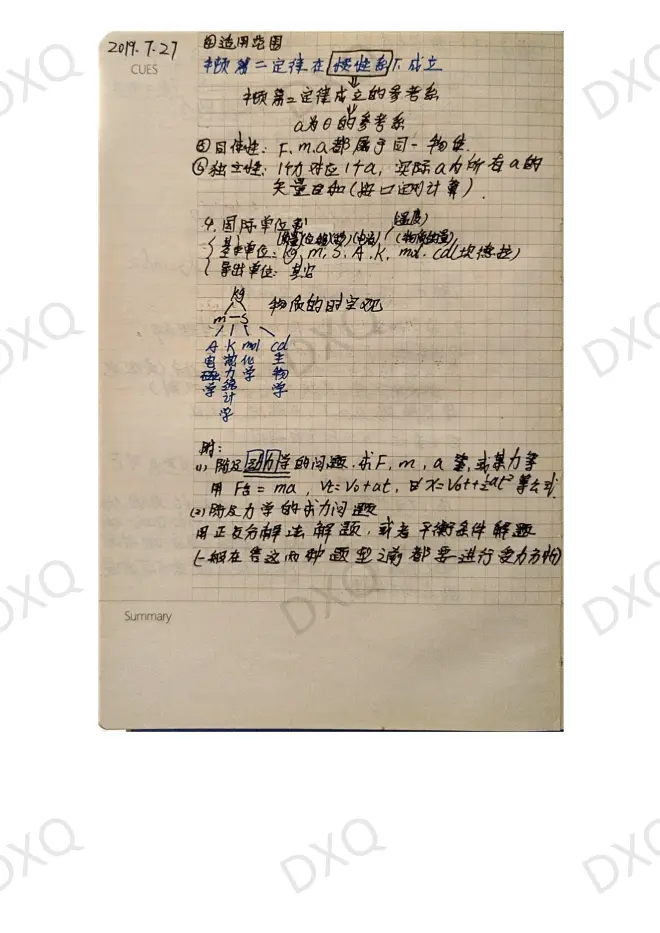 2019.7.27
CUES
④适用范围
牛顿第二定律在惯性系下成立
⇓
牛顿第二定律成立的参考系
⇓
a为0的参考系
⑤同体性：F、m、a都属于同一物体.
⑥独立性：1个力对应1个a，实际a为所有a的
矢量之和(
计算)
4.国际单位制
(温度)
(质量)(位移)(秒)(电流) (物质的量)
基本单位：kg、m、S、A、K、mol、cd(坎德拉)
导出单位：其它
kg
物质的时空观
m—S
A K mol cd
电磁学
热力统计学
化学
生物学
附：
(1)涉及动力学的问题，求F，m，a等，或某力等
用 F合=ma，Vt=V0+at，X=V0t+½at²等公式
(2)涉及力学的求力问题
用正交分解法解题，或者平衡条件解题
(一般在答这两种题型之前都要进行受力分析)
Summary
DXQ